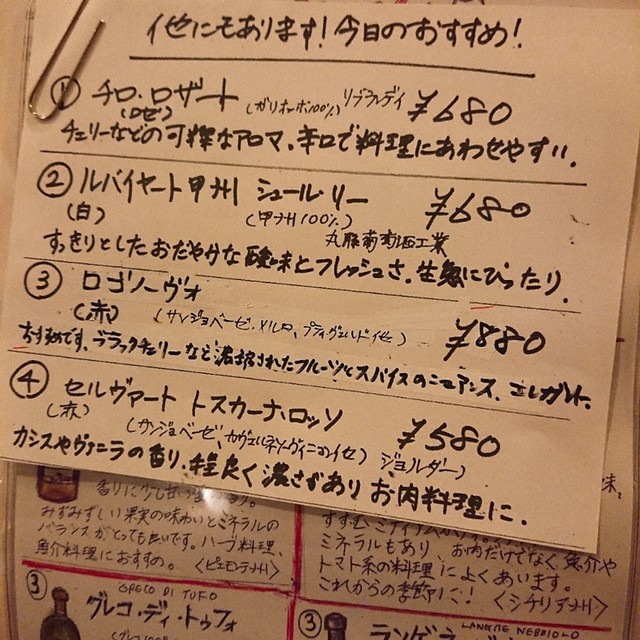 他にもあります!今日のおすすめ!
① チロ・ロザート (ガリオッポ100%) リブランディ ¥680
(ロゼ)
チェリーなどの可憐なアロマ、辛口で料理にあわせやすい。
② ルバイヤート甲州 シュール・リー ¥680
(白) (甲州100%) 丸藤葡萄酒工業
すっきりとしたおだやかな酸味とフレッシュさ。生魚にぴったり。
③ ロゴノーヴォ ¥880
(赤) (サンジョベーゼ、メルロ、プティヴェルド他)
おすすめです。ブラックチェリーなど濃縮されたフルーツとスパイスのニュアンス、エレガント。
④ セルヴァート トスカーナ・ロッソ ¥580
(赤) (サンジョベーゼ、カヴェルネソーヴィニヨン他) ジョルダー)
カシスやヴァニラの香り、程良く濃さがあり お肉料理に。
みずみずしい果実の味わいとミネラルの
バランスがとっても良いです。ハーブ料理、
魚介料理におすすめ。 〈ピエモンテ州〉
ミネラルもあり、お肉だけでなく魚介や
トマト系の料理によくあいます。
これからの季節に! 〈シチリア州〉
③ GRECO DI TUFO
グレコ・ディ・トゥフォ
③ LANGHE NEBBIOLO